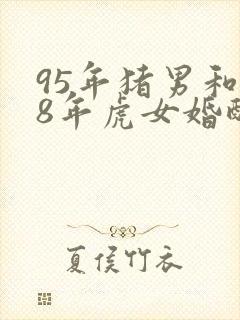 95年猪男和
8年虎女婚
夏侯竹衣